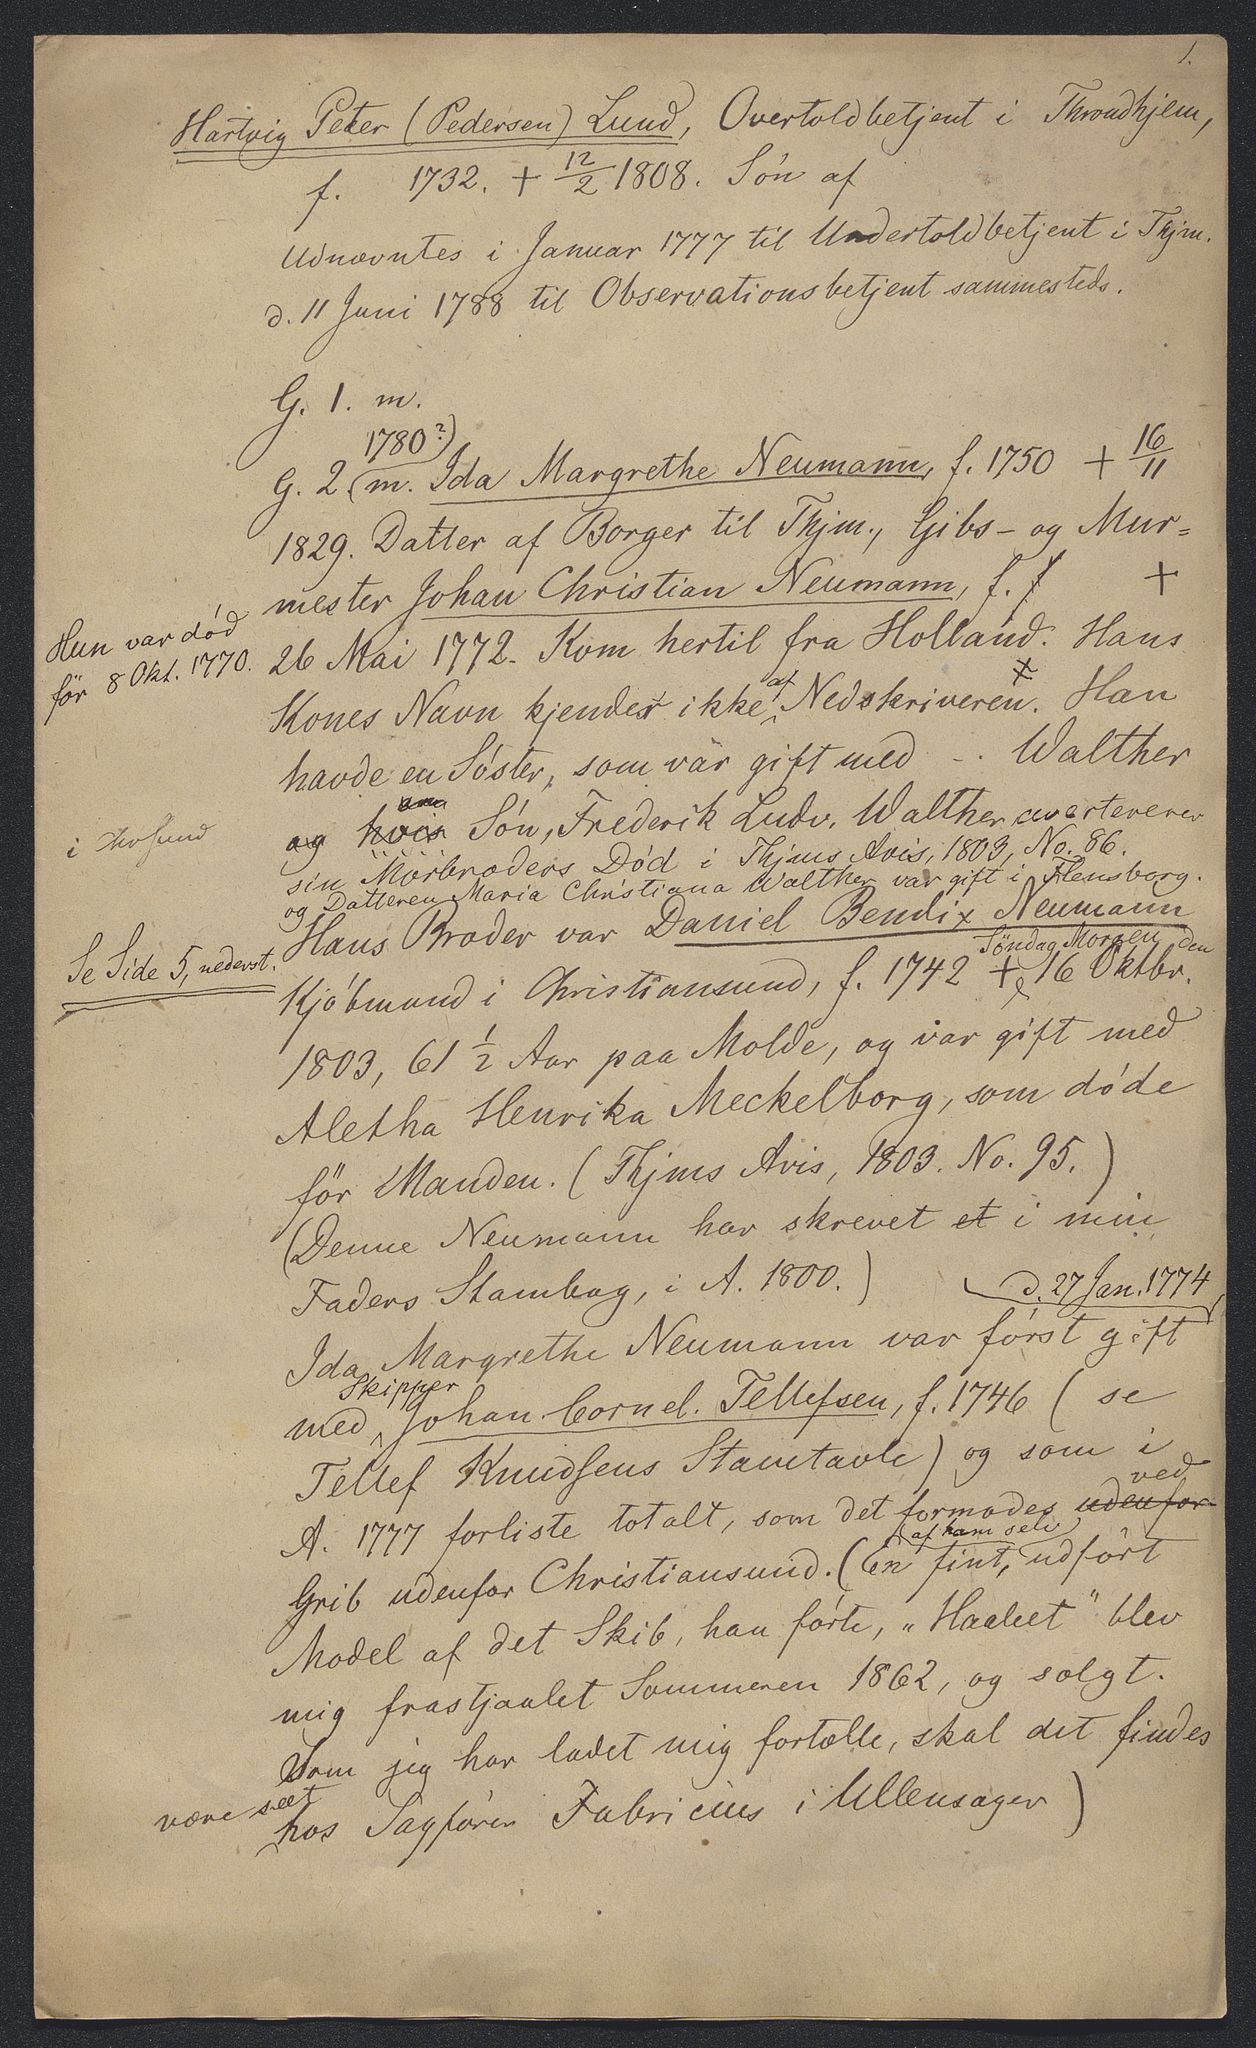 1.
Hartvig Peter (Pedersen) Lund, Overtoldbetjent i Throndhjem,
f. 1732. + 12/2 1808. Søn af
Udnævntes i Januar 1777 til Undertoldbetjent i Thjm.
d. 11 Juni 1788 til Observationsbetjent sammesteds.
G. 1. m.
1780?)
G. 2 (m. Ida Margrethe Neumann, f. 1750 + 16/11
1829. Datter af Borger til Thjm., Gibs- og Mur=
mester Johan Christian Neumann, f. +
Hun var død
før 8 Okt. 1770.
26 Mai 1772. Kom hertil fra Holland. Hans
Kones Navn kjendes ikke af Nedskriveren. Han
havde en Søster, som var gift med - . Walther
i
og hvis Søn, Frederik Ludv. Walther averterer
sin Morbroders Død i Thjms Avis, 1803, No. 86.
og Datteren Maria Christiana Walther var gift i Flensborg.
Hans Broder var Daniel Bendix Neumann
Se Side 5, nederst.
Søndag Morgen den
Kjøbmand i Christiansund, f. 1742 + 16 Oktbr.
1803, 61 1/2 Aar paa Molde, og var gift med
Aletha Henrika Meckelborg, som døde
før Manden. (Thjms Avis, 1803. No. 95.)
(Denne Neumann har skrevet et i min
Faders Stambog, i A. 1800.)
d. 27 Jan. 1774
Ida Margrethe Neumann var først gift
Skipper
med Johan Cornel. Tellefsen, f. 1746 (se
Tellef Knudsens Stamtavle) og som i
ved
A. 1777 forliste totalt, som det formodes udenfor
af ham selv
Grib udenfor Christiansund. (En fint, udført
Model af det Skib, han førte, "Haabet" blev
mig frastjaalet Sommeren 1862, og solgt.
Som jeg har ladet mig fortælle, skal det findes
være seet
hos Sagfører Fabricius i Ullensager)